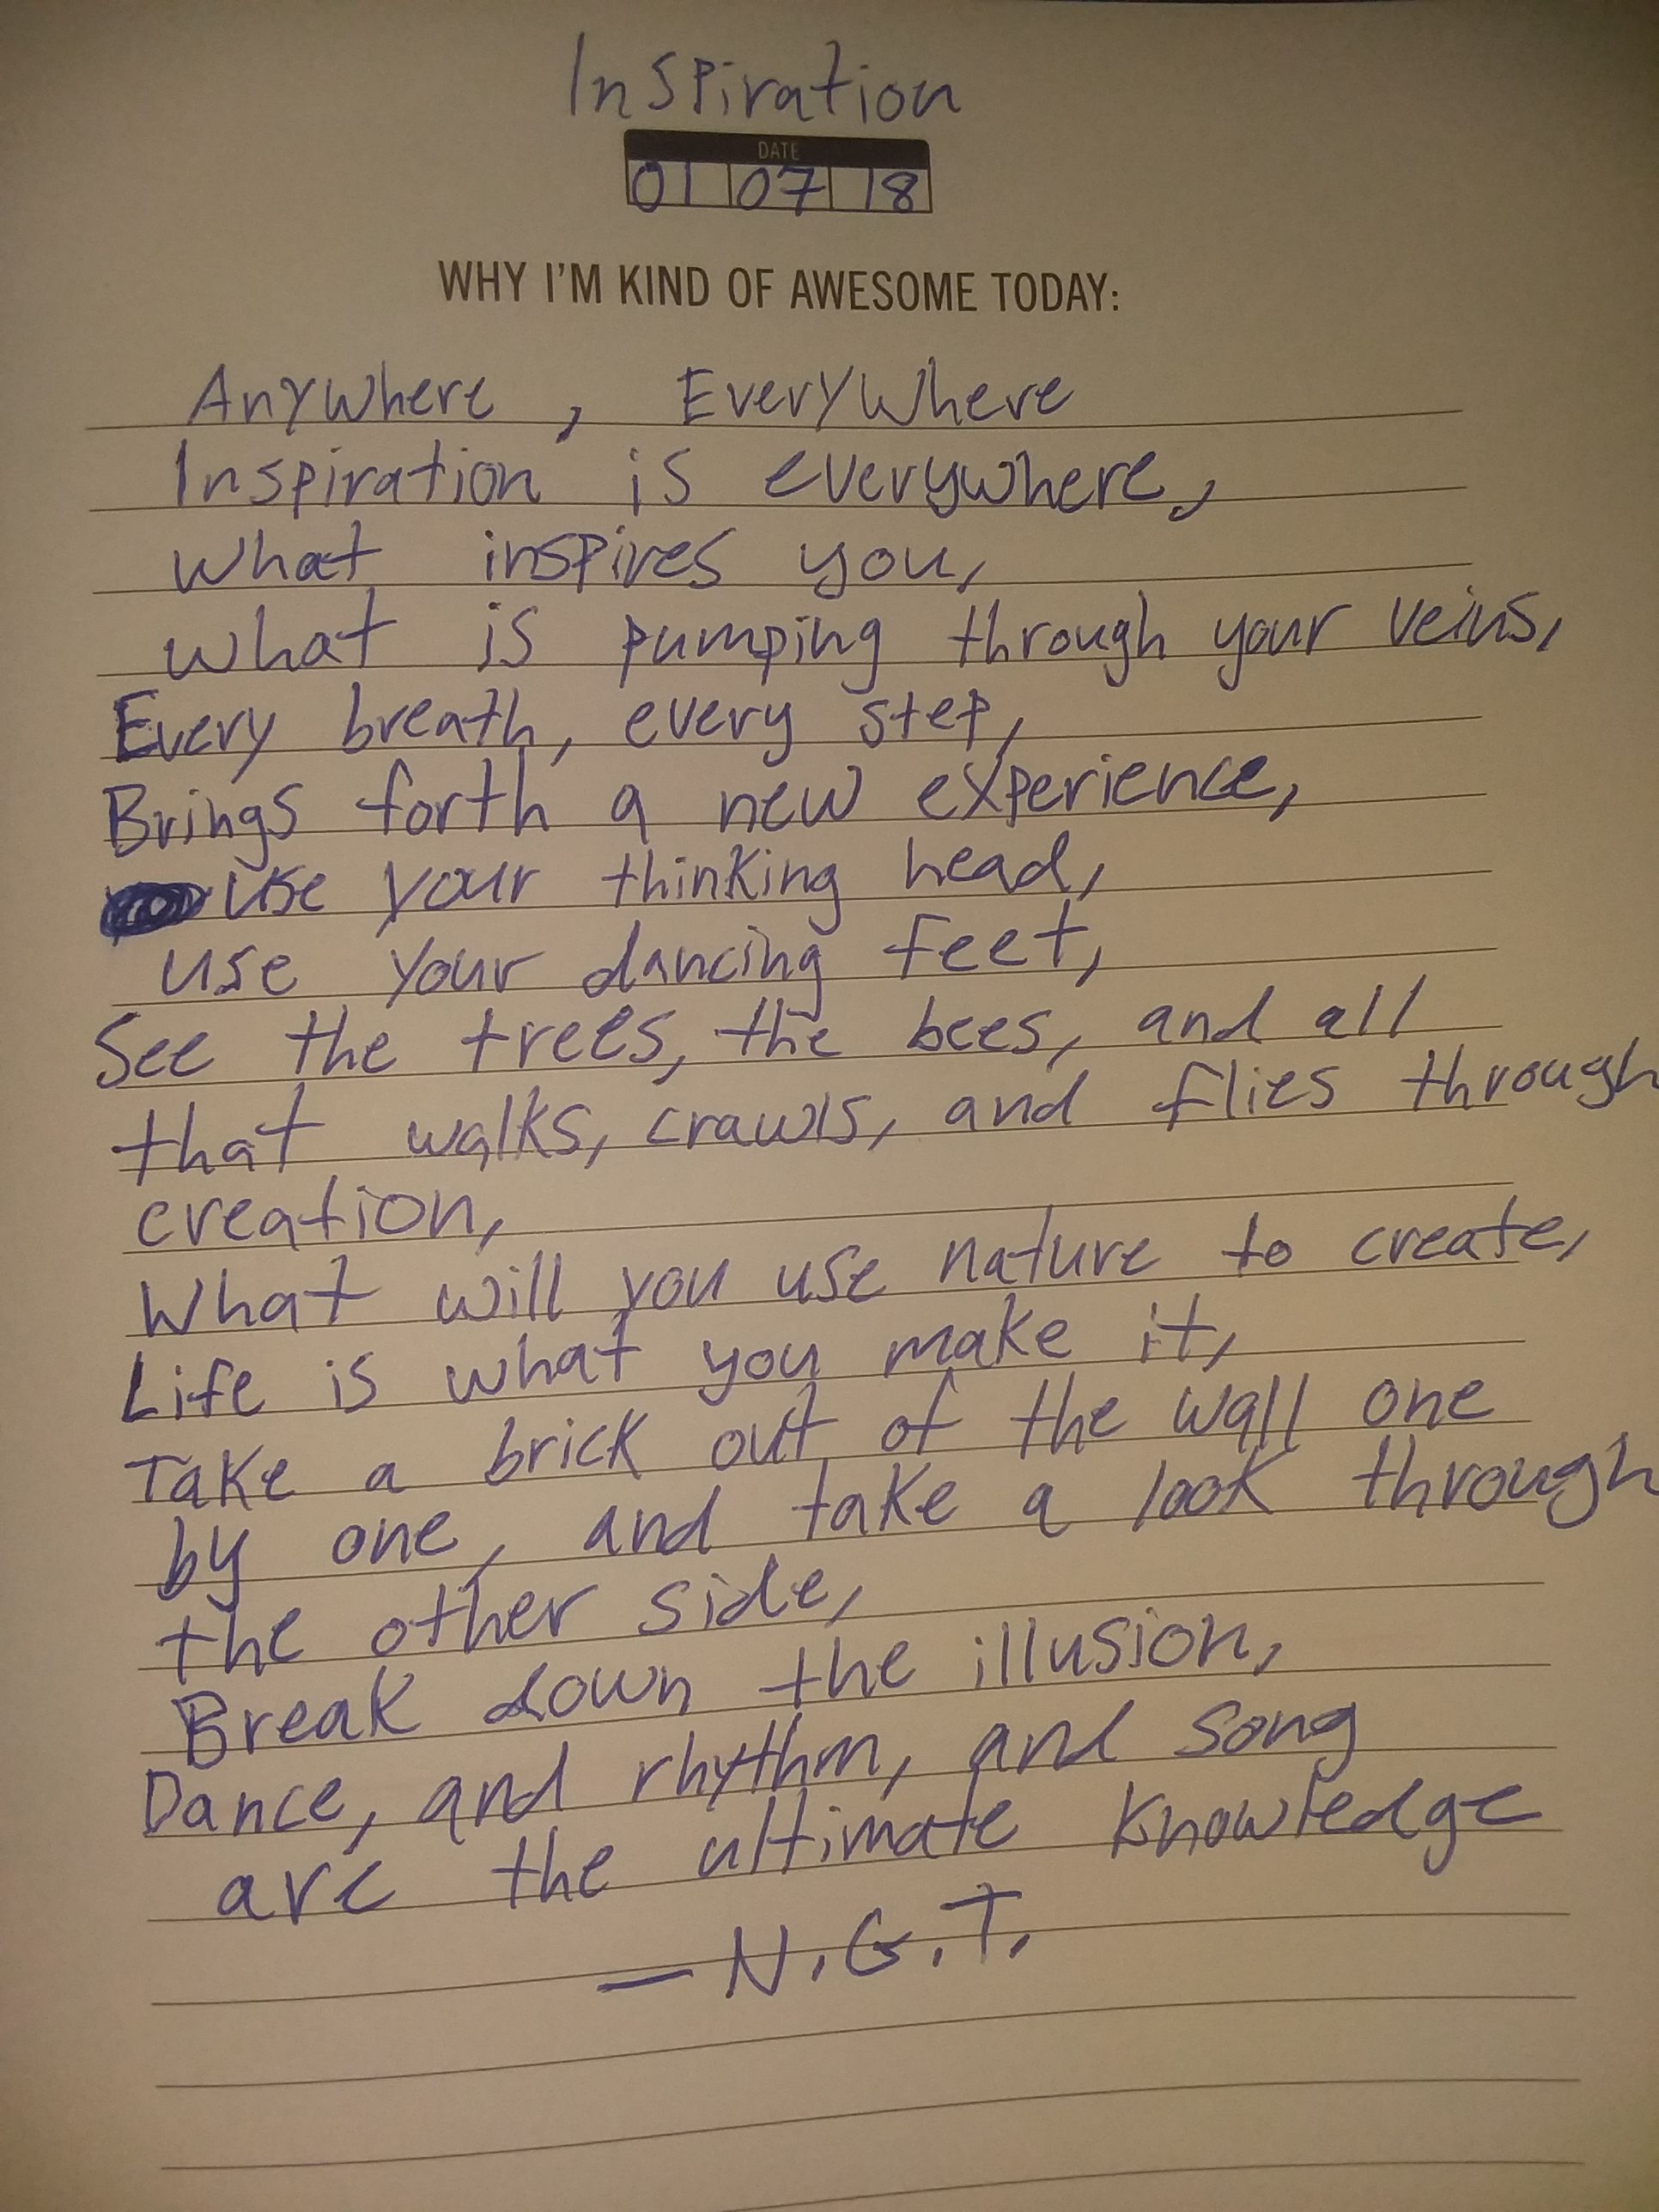 Inspiration
DATE
01 07 18
WHY I'M KIND OF AWESOME TODAY:
Anywhere, Everywhere
Inspiration is everywhere,
what inspires you,
what is pumping through your veins,
Every breath, every step,
Brings forth a new experience,
use your thinking head,
use your dancing feet,
See the trees, the bees, and all
that walks, crawls, and flies through
creation,
What will you use nature to create,
Life is what you make it,
Take a brick out of the wall one
by one, and take a look through
the other side,
Break down the illusion,
Dance, and rhythm, and song
are the ultimate knowledge
— N.G.T.